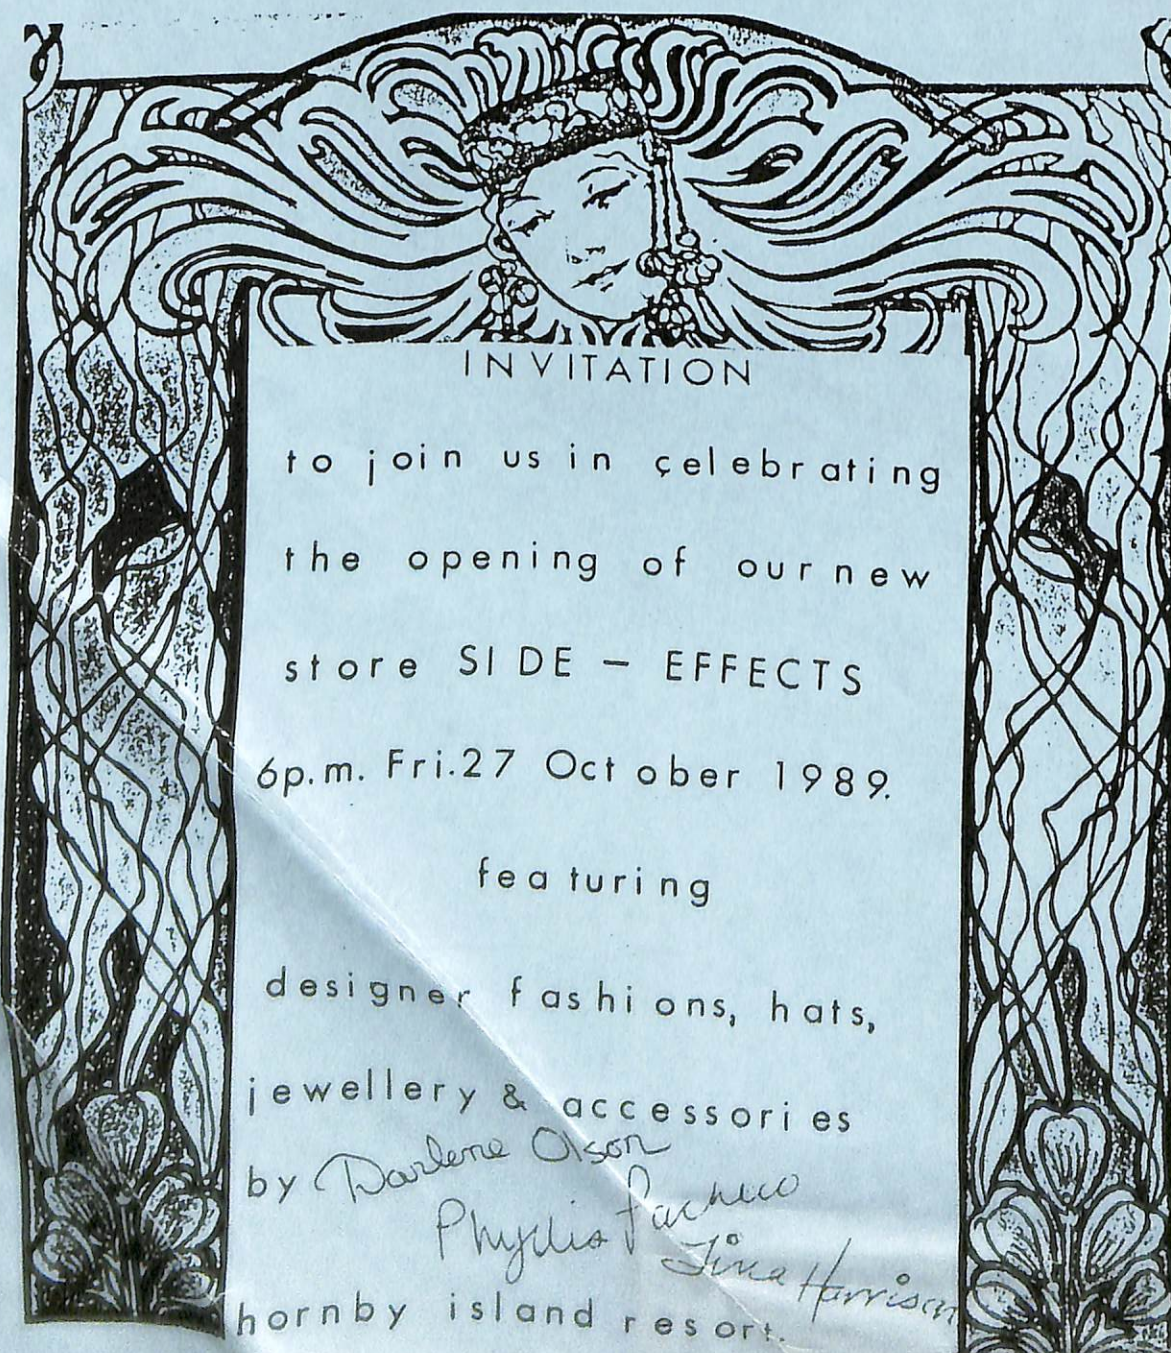 INVITATION
to join us in celebrating
the opening of our new
store SIDE – EFFECTS
6p.m. Fri.27 October 1989.
featuring
designer fashions, hats,
jewellery & accessories
by Darlene Olson
Phyllis Pacheco
Tina Harrison
hornby island resort.